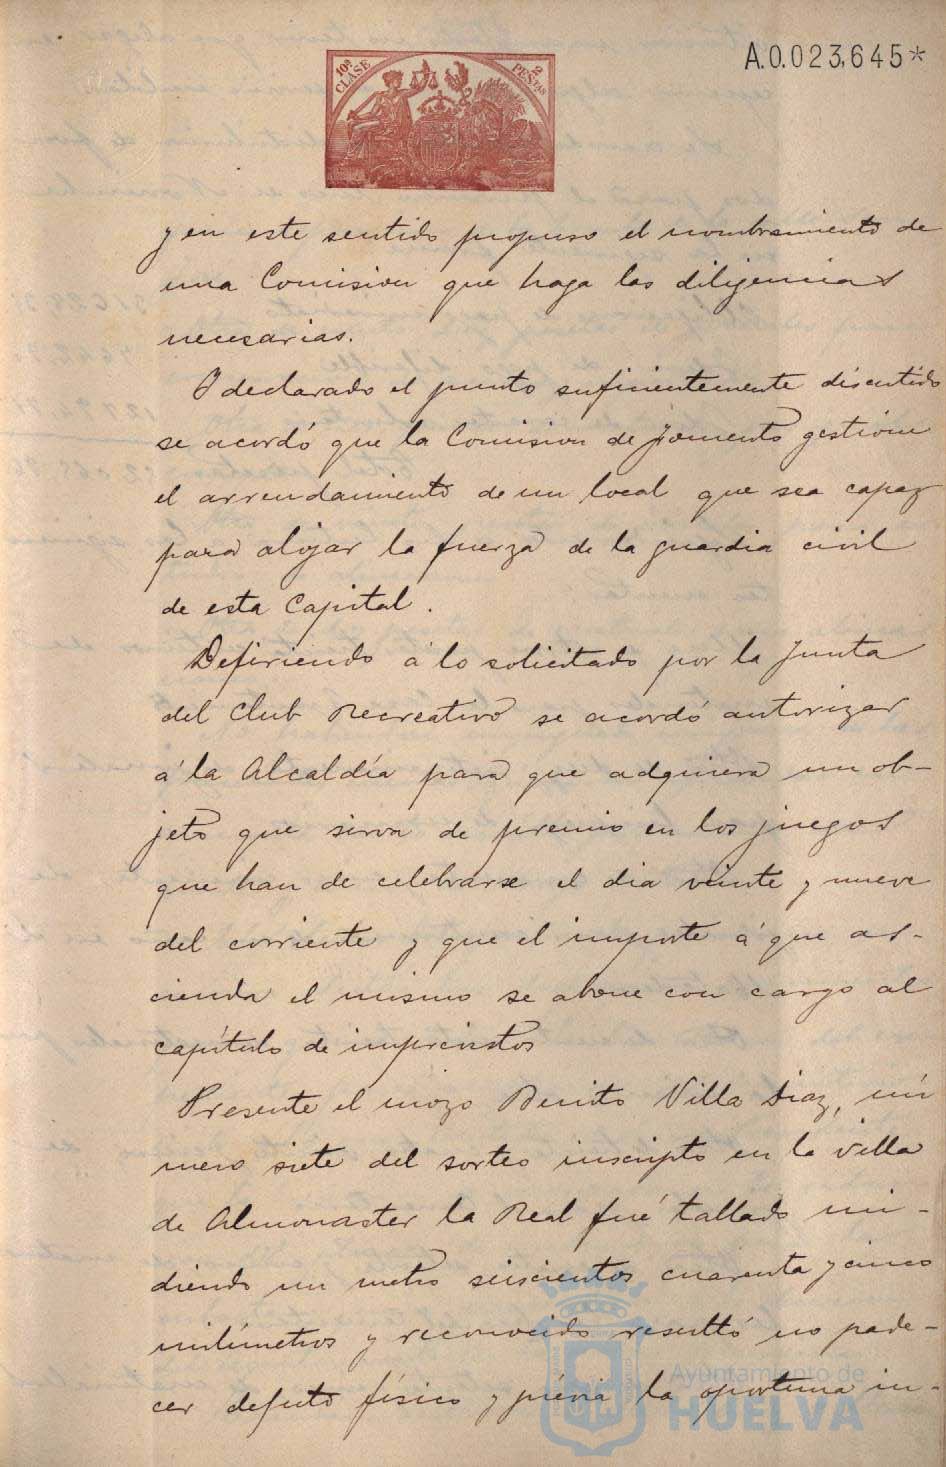 A.0.023,645*
10ª CLASE
2 PESETAS
y en este sentido propuso el nombramiento de
una Comision que haga las diligencias
necesarias.
Y declarado el punto suficientemente discutido
se acordó que la Comision de Fomento gestione
el arrendamiento de un local que sea capaz
para alojar la fuerza de la guardia civil
de esta Capital.
Defiriendo á lo solicitado por la Junta
del Club Recreativo se acordó autorizar
á la Alcaldía para que adquiera un ob-
jeto que sirva de premio en los juegos
que han de celebrarse el dia veinte y nueve
del corriente y que el importe á que as-
cienda el mismo se abone con cargo al
capítulo de imprevistos
Presente el mozo Benito Villa Diaz, nú
mero siete del sorteo inscripto en la villa
de Almonaster la Real fué tallado mi-
diendo un metro seiscientos cuarenta y cinco
milímetros y reconocido resultó no pade-
cer defecto físico y prévia la oportuna in-
Ayuntamiento de
HUELVA